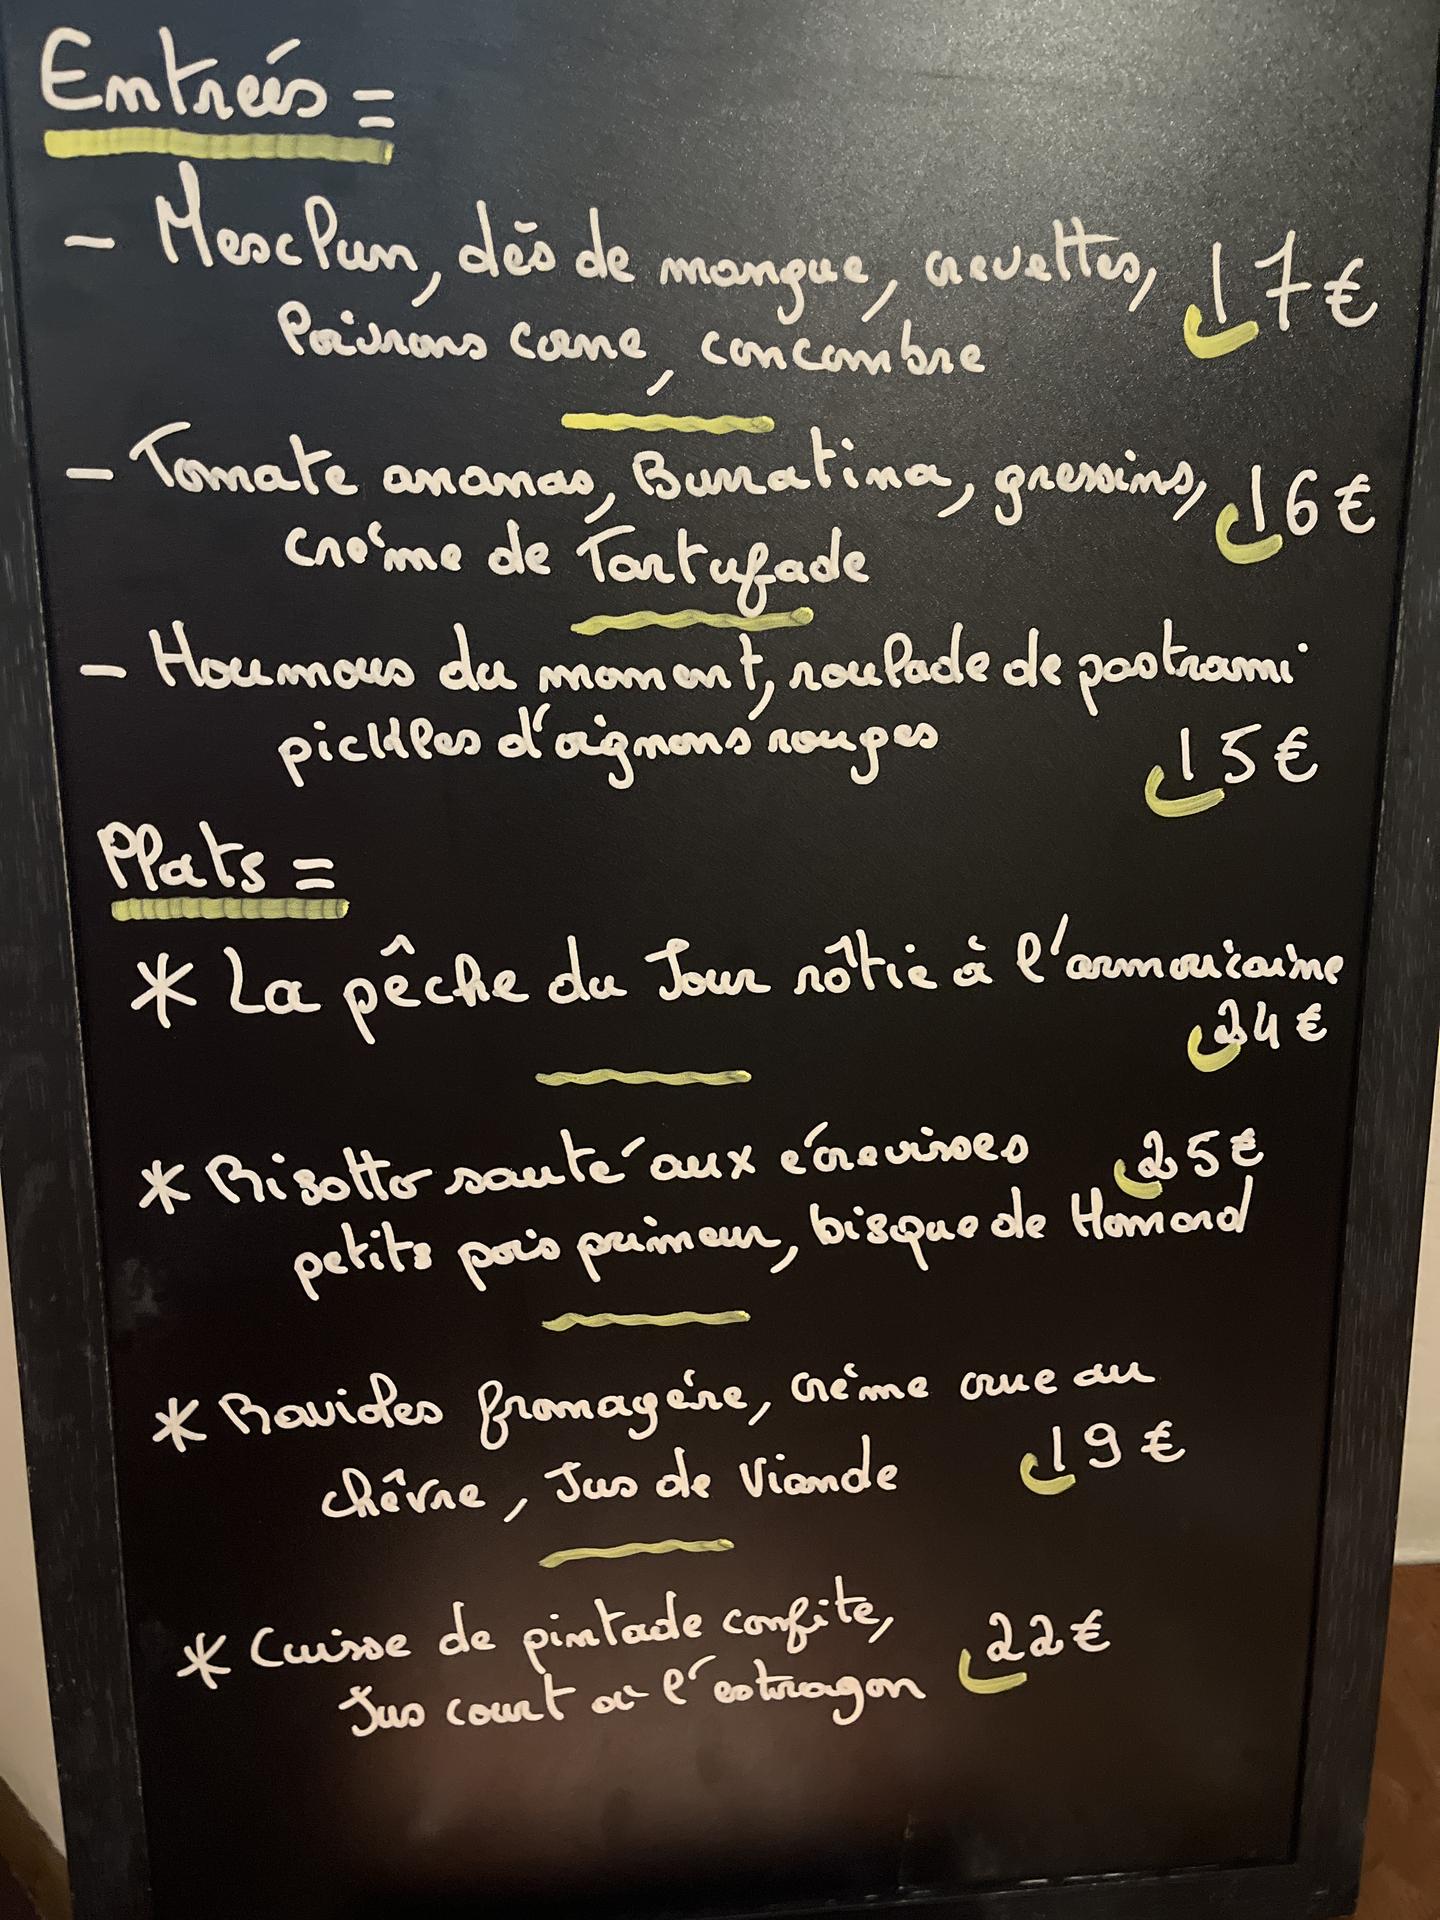 Entrées =
- Mesclun, dés de mangue, crevettes, 17€
Poivrons corne, concombre
- Tomate ananas, Burratina, gressins, 16€
crème de Tartufade
- Houmous du moment, roulade de pastrami
pickles d'oignons rouges 15€
Plats =
* La pêche du Jour rôtie à l'armoricaine
24€
* Risotto sauté aux écrevisses 25€
petits pois primeur, bisque de Homard
* Ravioles fromagère, crème crue au
chêvre, Jus de Viande 19€
* Cuisse de pintade confite, 22€
Jus court à l'estragon